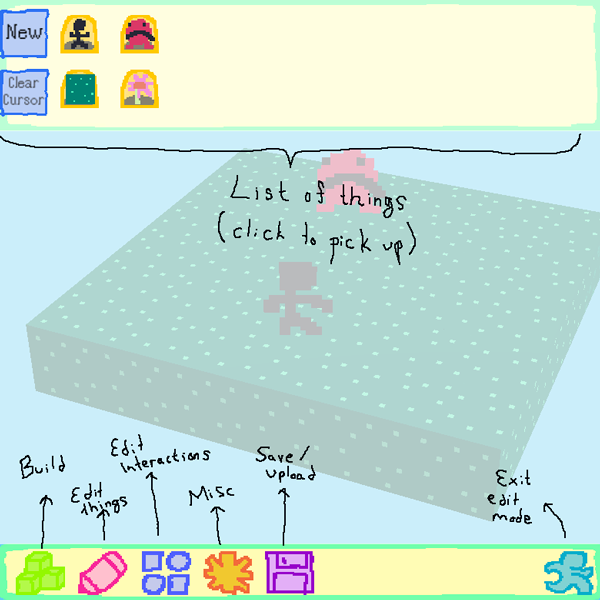 New
Clear
Cursor
List of things
(click to pick up)
Build
Edit
things
Edit
Interactions
Misc
Save/
upload
Exit
edit
mode